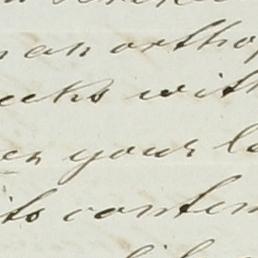 an ortho
eeks with
your la
its conten